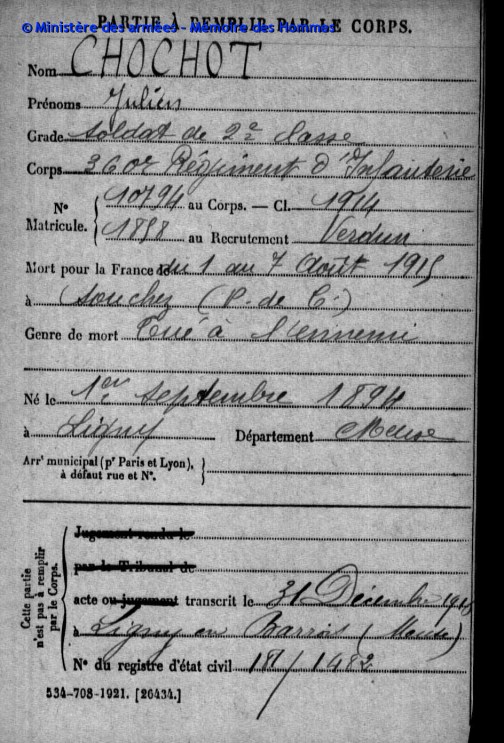 PARTIE À REMPLIR PAR LE CORPS.
© Ministère des armées - Mémoire des Hommes
Nom CHOCHOT
Prénoms Julien
Grade Soldat de 2e Classe
Corps 360e Régiment d'Infanterie
N° Matricule. 10794 au Corps. — Cl. 1914
1858 au Recrutement Verdun
Mort pour la France le du 1 au 7 Août 1915
à Souchez (P. de C.)
Genre de mort Tué à l'ennemi
Né le 1er Septembre 1894
à Ligny Département Meuse
Arrt municipal (pr Paris et Lyon),
à défaut rue et N°.
Cette partie n'est pas à remplir par le Corps.
Jugement rendu le
par le Tribunal de
acte ou jugement transcrit le 31 Décembre 1915
à Ligny en Barrois (Meuse)
N° du registre d'état civil 181/1482
534-708-1921. [26434.]